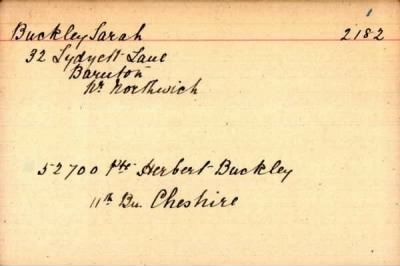 Buckley Sarah 2182
32 Lydyett Lane
Barnton
Nr Northwich
52700 Pte Herbert Buckley
11th Bn. Cheshire